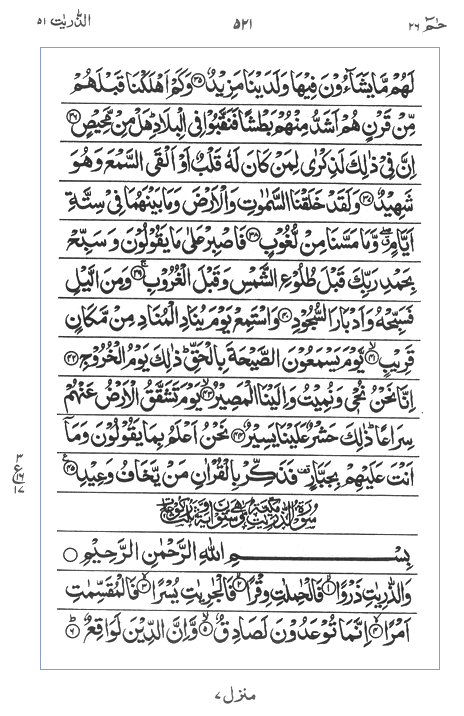 حٰمٓ ٢٦ ٥٢١ الذّٰریٰت ٥١
لَهُمْ مَّا یَشَآءُوْنَ فِیْهَا وَلَدَیْنَا مَزِیْدٌ ﴿٣٥﴾ وَكَمْ اَهْلَكْنَا قَبْلَهُمْ
مِّنْ قَرْنٍ هُمْ اَشَدُّ مِنْهُمْ بَطْشًا فَنَقَّبُوْا فِی الْبِلَادِ ؕ هَلْ مِنْ مَّحِیْصٍ ﴿٣٦﴾
اِنَّ فِیْ ذٰلِكَ لَذِكْرٰی لِمَنْ كَانَ لَهٗ قَلْبٌ اَوْ اَلْقَی السَّمْعَ وَهُوَ
شَهِیْدٌ ﴿٣٧﴾ وَلَقَدْ خَلَقْنَا السَّمٰوٰتِ وَالْاَرْضَ وَمَا بَیْنَهُمَا فِیْ سِتَّةِ
اَیَّامٍ ۖۗ وَّمَا مَسَّنَا مِنْ لُّغُوْبٍ ﴿٣٨﴾ فَاصْبِرْ عَلٰی مَا یَقُوْلُوْنَ وَسَبِّحْ
بِحَمْدِ رَبِّكَ قَبْلَ طُلُوْعِ الشَّمْسِ وَقَبْلَ الْغُرُوْبِ ﴿٣٩﴾ وَمِنَ الَّیْلِ
فَسَبِّحْهُ وَاَدْبَارَ السُّجُوْدِ ﴿٤٠﴾ وَاسْتَمِعْ یَوْمَ یُنَادِ الْمُنَادِ مِنْ مَّكَانٍ
قَرِیْبٍ ﴿٤١﴾ یَّوْمَ یَسْمَعُوْنَ الصَّیْحَةَ بِالْحَقِّ ؕ ذٰلِكَ یَوْمُ الْخُرُوْجِ ﴿٤٢﴾
اِنَّا نَحْنُ نُحْیٖ وَنُمِیْتُ وَاِلَیْنَا الْمَصِیْرُ ﴿٤٣﴾ یَوْمَ تَشَقَّقُ الْاَرْضُ عَنْهُمْ
سِرَاعًا ؕ ذٰلِكَ حَشْرٌ عَلَیْنَا یَسِیْرٌ ﴿٤٤﴾ نَحْنُ اَعْلَمُ بِمَا یَقُوْلُوْنَ وَمَاۤ
اَنْتَ عَلَیْهِمْ بِجَبَّارٍ ۫ فَذَكِّرْ بِالْقُرْاٰنِ مَنْ یَّخَافُ وَعِیْدِ ﴿٤٥﴾
٣
ع ١٦
١٧
سُوْرَةُ الذّٰرِیٰتِ مَكِّیَّةٌ وَّهِیَ سِتُّوْنَ اٰیَةً وَّثَلٰثُ رُكُوْعَاتٍ
بِسْمِ اللهِ الرَّحْمٰنِ الرَّحِیْمِ
وَالذّٰرِیٰتِ ذَرْوًا ﴿١﴾ فَالْحٰمِلٰتِ وِقْرًا ﴿٢﴾ فَالْجٰرِیٰتِ یُسْرًا ﴿٣﴾ فَالْمُقَسِّمٰتِ
اَمْرًا ﴿٤﴾ اِنَّمَا تُوْعَدُوْنَ لَصَادِقٌ ﴿٥﴾ وَّاِنَّ الدِّیْنَ لَوَاقِعٌ ﴿٦﴾
منزل ٧